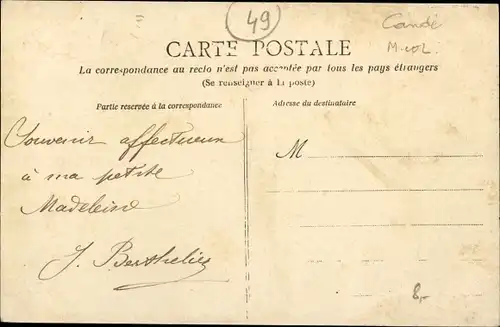 49
Candé
M-et-L.
CARTE POSTALE
La correspondance au recto n'est pas acceptée par tous les pays étrangers
(Se renseigner à la poste)
Partie reservée à la correspondance
Adresse du destinataire
Souvenir affectueux
à ma petite
Madeleine
J. Berthelier
M
8,-